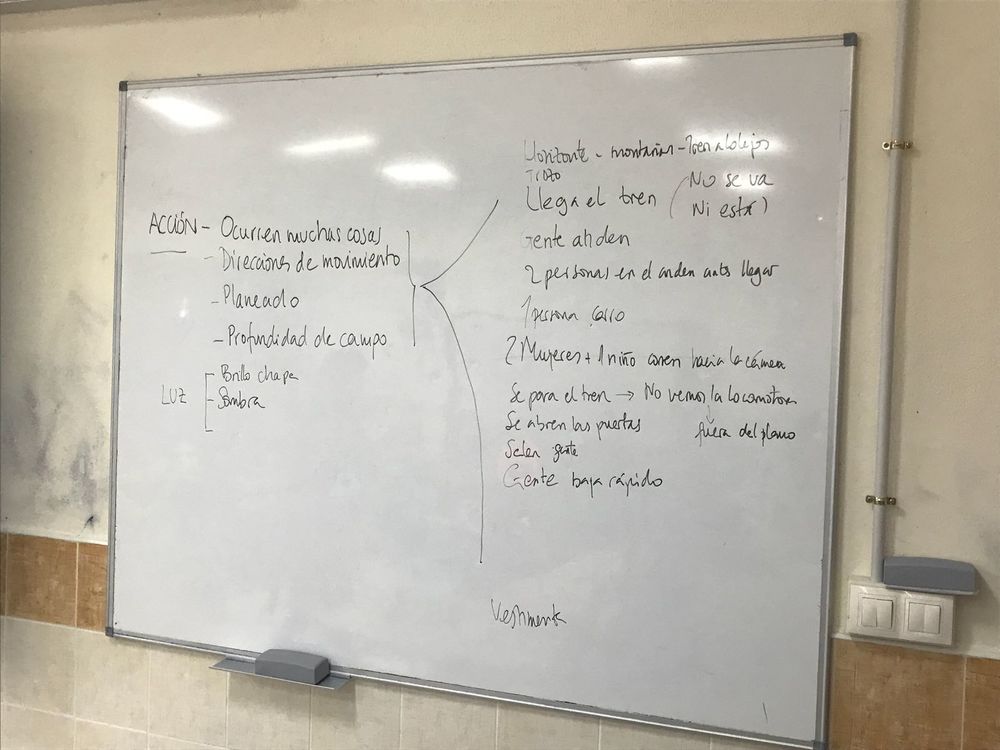 ACCIÓN - Ocurren muchas cosas
- Direciones de movimiento
- Planeado
- Profundidad de campo
LUZ
- Brillo chapa
- Sombra
Horizonte - montañas - Tren a lo lejos
Trozo
Llega el tren (No se va
Ni está)
Gente anden
2 personas en el anden antes llegar
1 persona carro
2 Mujeres + 1 niño corren hacia la cámera
Se para el tren → No vemos la locomotora
Se abren las puertas
fuera del plano
Salen gente
Gente baja rápido
Vestimenta